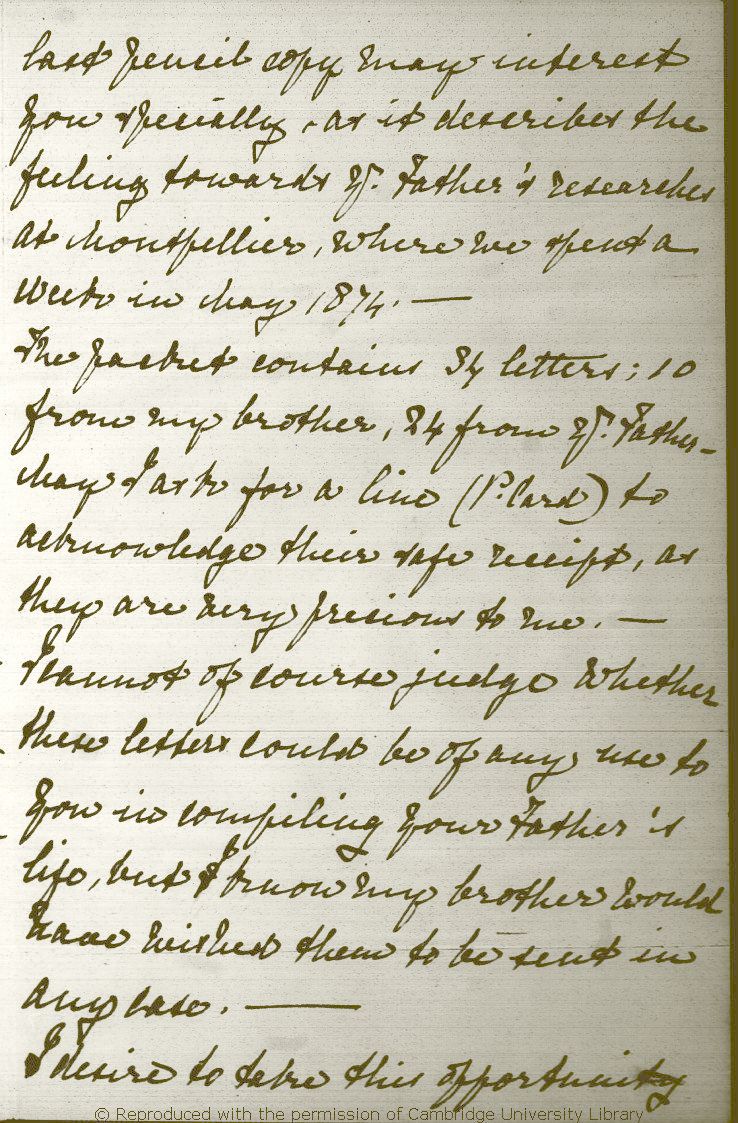 last pencil copy may interest
you specially, as it describes the
feeling towards yr. Father's researches
at Montpellier, where we spent a
week in May 1874. —
The packet contains 34 letters; 10
from my brother, 24 from yr. Father -
May I ask for a line (P. Card) to
acknowledge their safe receipt, as
they are very precious to me. —
I cannot of course judge whether
these letters could be of any use to
you in compiling your Father's
life, but I know my brother would
have wished them to be sent in
any case. —
I desire to take this opportunity
© Reproduced with the permission of Cambridge University Library